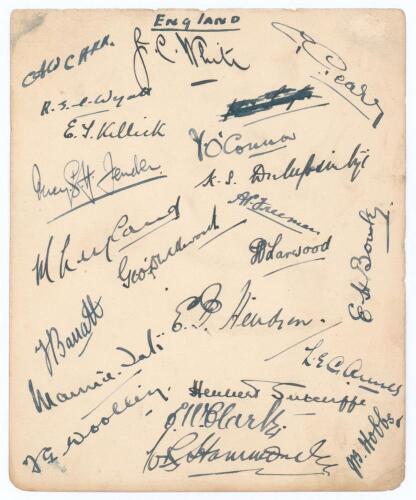 ENGLAND
A W CARR.
J. C. White
G. Geary
R. E. S. Wyatt
E. T. Killick
J O'Connor
Percy G. H. Fender
K. S. Duleepsinhji
A P Freeman
M Leyland
Geo Duckworth
H Larwood
E H Bowley
F Barratt
E. P. Hendren.
Maurice Tate
L. E G. Ames
F E Woolley.
Herbert Sutcliffe
E W Clark.
W R Hammond
J B Hobbs